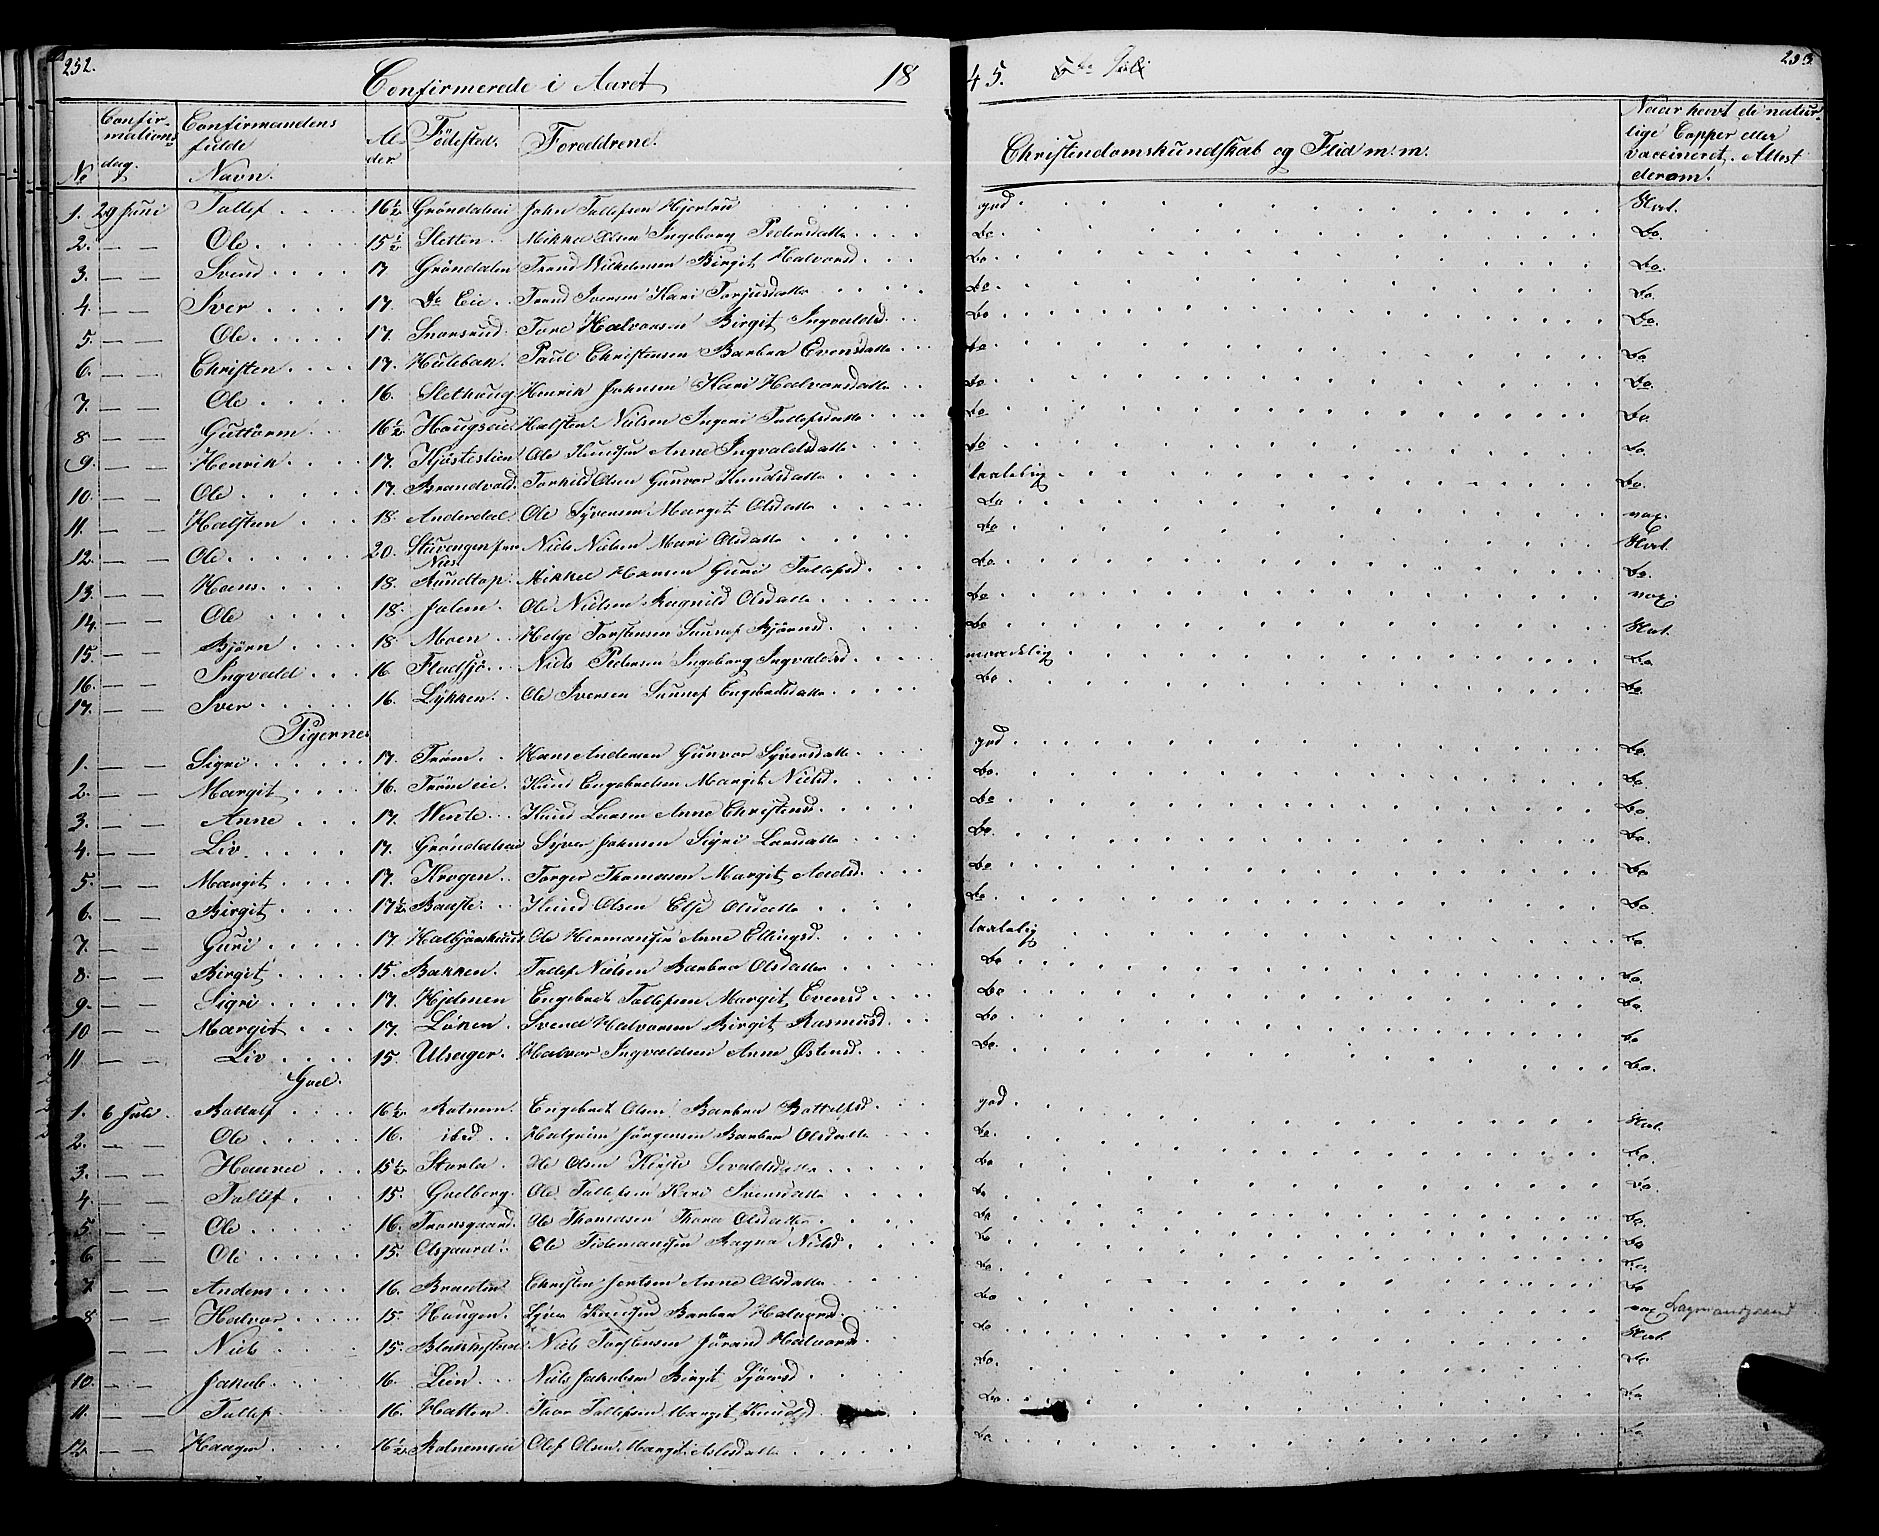 252. Confirmerede i Aaret 18 45. 6te Juli 253.
No Confirmations dag. Confirmandens fulde Navn. Alder Fødested. Forældrene. Christendomskundskab og Flid m. m. Naar havt de naturlige Copper eller vaccineret. Attest derom.
1. 29 Juni Tollef 16½ Gröndalen John Tollefsen god Hvt.
2. — — Ole 15½ Sletten Mikkel Olsen Ingeborg Pedersdatte do do.
3. — — Svend 17 Gröndalen Trond Birgit Halvorsd do do.
4. — — Iver 17. do Eie. Trond Iversen Kari Torjusdatte do do.
5. — — Ole 17. Snarsrud. Tore Halvorsen Birgit Ingvaldsd. do do.
6. — — Christen 17. Hulebak. Paul Christensen Barbra Evensdatte do do
7. — — Ole 16. Slethaug Henrik Johnsen Kari Halvorsdatte do do.
8 — — Guttorm 16½ Haugseie Halsten Nielsen Ingeri Tollefsdatte do do
9. — — Henrik 17. Ole Knudsen Anne Ingvaldsdatte do do
10. — — Ole 17. Brandvold. Torkild Olsen Gunvor Knudsdatte taalelig do.
11. — — Halsten 18. Anderdal. Ole Syversen Margit Olsdatte do vax.
12. — — Ole 20. Stavengen fra Næs Niels Nielsen Mari Olsdatte do Hvt.
13. — — Hans 18. Mikkel Hansen Guri Tollefsd. do do.
14. — — Ole 18. Ole Nielsen Ragnild Olsdatte do vax.
15. — — Björn 18 Moen Helge Torstensen Sunnef Björnsd. do Hvt.
16. — — Ingvald 16 Fladsjö Niels Pedersen Ingeborg Ingvaldsd maadelig do
17. — — Iver 16. Lykken. Ole Iversen Sunnef Engebretsdatte do do
Pigerne
1. — — Sigri 17. Tröm. Hans Andersen Gunvor Syversdatte god do.
2. — — Margit 16. Tröm eie. Knud Engebretsen Margit Nielsd. do. do
3. — — Anne 17. Wente Knud Larsen Anne Christensd. do do.
4. — — Liv 17. Gröndalseie Syver Johnsen Sigri Larsdatte do. do.
5. — — Margit 17. Krogen. Torger Thomassen Margit do do
6. — — Birgit 17½ Knud Olsen Elsi Olsdatte do do.
7. — — Guri 17. Ole Hermansen Anne Ellingsd. taalelig do
8. — — Birgit 15. Bakken. Tollef Nielsen Barbra Olsdatte do do.
9. — — Sigri 17. Hjelmen Engebret Tollefsen Margit Evensd do do.
10 — — Margit 17. Löken. Svend Halvorsen Birgit Rasmusd. do do
11 — — Liv 15. Ulsager. Halvor Ingvaldsen Anne Østensd. do. do.
Goel.
1. 6 Juli. Bottolf 16½ Rotnem. Engebret Olsen Barbra Bottolfsd. god Hvt.
2. — — Ole 16. ibid Halgrim Jörgensen Barbra Olsdatte do do.
3. — — Haavel 15½ Storla Ole Olsen Kristi Sevaldsdatte do do.
4 — — Tollef 15. Goelberg. Ole Tollefsen Kari Svensdatte do do.
5. — — Ole 16. Tronsgaard. Ole Thomassen Thora Olsdatte do do
6 — — Ole 15. Olsgaard. Ole Tidemansen Ragna Nielsd. do do.
7 — — Anders 16. Braaten Christen Anne Olsdatte do do
8 — — Halvor 15. Haugen. Syver Knudsen Barbra Halvorsd. do vax Dagmandgaard
— — Niels 15. Niels Torstensen Jörand Halvorsd. do Hvt.
10. — — Jakob 16. Lien Niels Jakobsen Birgit Björnsd do. do
11. — — Tollef 16. Hatten Thor Tollefsen Margit Knudsd. do do
12. — — Haagen 16½ Rotnemseie Olef Olsen Margit do. do